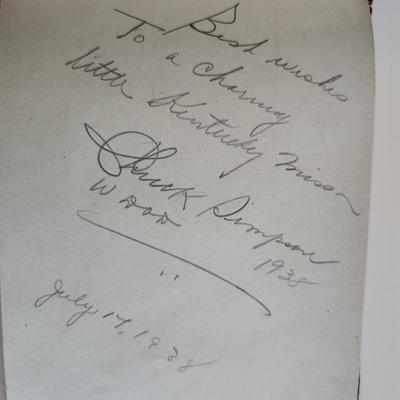 Best wishes
To a charming
little Kentucky misson
Chuck Simpson
WDOD
1938
July 17, 1938